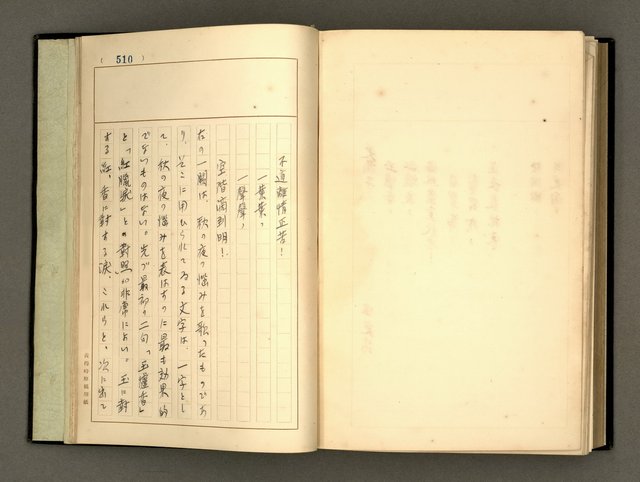 ( 510 )
不道離情正苦!
一葉葉,
一聲聲,
空階滴到明!
右の一闋は、秋の夜の惱みを歌つたものであ
り、そこに用ひられてゐる文字は、一字とし
て、秋の夜の惱みを表はすのに最も効果的
でないものはない。先づ最初の二句「玉爐香」
と「紅蠟淚」との對照が非常によい。玉に對
する紅、香に對する淚、これらと、次に出て